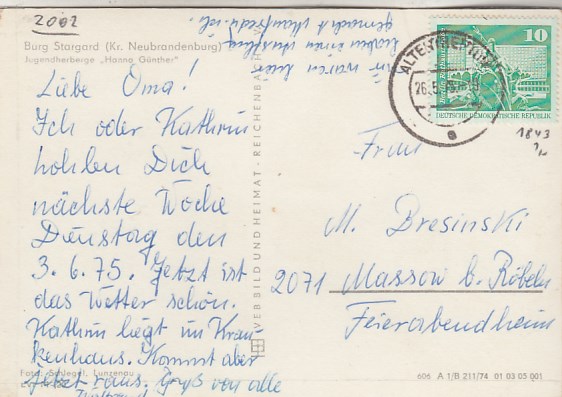 2002
Burg Stargard (Kr. Neubrandenburg)
Jugendherberge „Hanno Günther"
Liebe Oma!
Ich oder Kathrin
hohlen Dich
nächste Woche
Dienstag den
3.6.75. Jetzt ist
das Wetter schön.
Kathrin liegt im Kran-
kenhaus. Kommt aber
jetzt raus. Gruß von alle
Foto: Schlegel, Lunzenau
wir waren
haben einen Ausflug
gemacht. Manfred u. ich.
VEB BILD UND HEIMAT · REICHENBACH
10
DEUTSCHE DEMOKRATISCHE REPUBLIK
1843
Frau
M. Bresinski
2071 Massow b. Röbeln
Feierabendheim
606 A 1/B 211/74 01 03 05 001